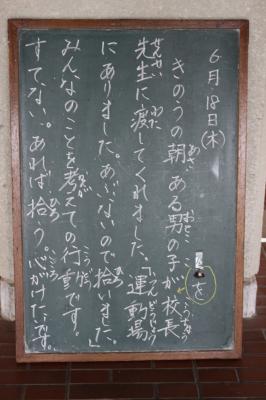 6月18日(木)
きのうの朝、ある男の子が校長
先生に渡してくれました、「運動場
にありました。あぶないので拾いました。」
みんなのことを考えての行動です。
すてない。あれば拾う。心がけたいです。
を